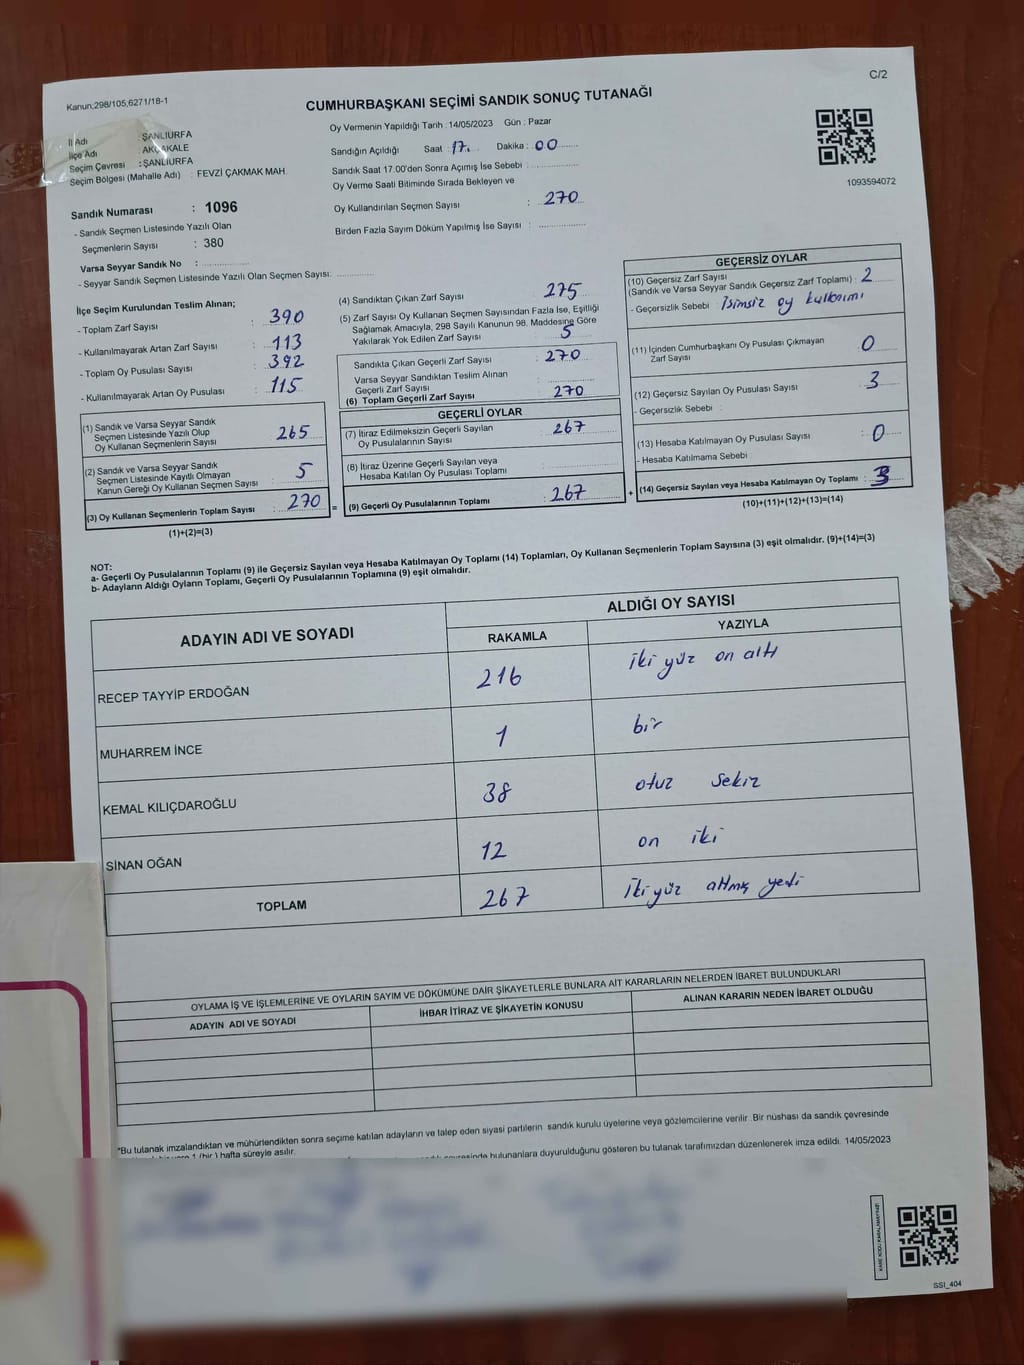 C/2
Kanun;298/105,6271/18-1
CUMHURBAŞKANI SEÇİMİ SANDIK SONUÇ TUTANAĞI
İl Adı : ŞANLIURFA
İlçe Adı : AKÇAKALE
Seçim Çevresi : ŞANLIURFA
Seçim Bölgesi (Mahalle Adı) : FEVZİ ÇAKMAK MAH.
Sandık Numarası : 1096
- Sandık Seçmen Listesinde Yazılı Olan
Seçmenlerin Sayısı : 380
Varsa Seyyar Sandık No :
- Seyyar Sandık Seçmen Listesinde Yazılı Olan Seçmen Sayısı:
Oy Vermenin Yapıldığı Tarih : 14/05/2023 Gün : Pazar
Sandığın Açıldığı Saat : 17. Dakika : 00
Sandık Saat 17.00'den Sonra Açımış İse Sebebi :
Oy Verme Saati Bitiminde Sırada Bekleyen ve
Oy Kullandırılan Seçmen Sayısı : 270
Birden Fazla Sayım Döküm Yapılmış İse Sayısı :
1093594072
İlçe Seçim Kurulundan Teslim Alınan;
- Toplam Zarf Sayısı : 390
- Kullanılmayarak Artan Zarf Sayısı : 113
- Toplam Oy Pusulası Sayısı : 392
- Kullanılmayarak Artan Oy Pusulası : 115
(1) Sandık ve Varsa Seyyar Sandık
Seçmen Listesinde Yazılı Olup
Oy Kullanan Seçmenlerin Sayısı : 265
(2) Sandık ve Varsa Seyyar Sandık
Seçmen Listesinde Kayıtlı Olmayan
Kanun Gereği Oy Kullanan Seçmen Sayısı : 5
(3) Oy Kullanan Seçmenlerin Toplam Sayısı : 270 =
(1)+(2)=(3)
(4) Sandıktan Çıkan Zarf Sayısı : 275
(5) Zarf Sayısı Oy Kullanan Seçmen Sayısından Fazla İse, Eşitliği
Sağlamak Amacıyla, 298 Sayılı Kanunun 98. Maddesine Göre
Yakılarak Yok Edilen Zarf Sayısı : 5
Sandıkta Çıkan Geçerli Zarf Sayısı : 270
Varsa Seyyar Sandıktan Teslim Alınan
Geçerli Zarf Sayısı :
(6) Toplam Geçerli Zarf Sayısı : 270
GEÇERLİ OYLAR
(7) İtiraz Edilmeksizin Geçerli Sayılan
Oy Pusulalarının Sayısı : 267
(8) İtiraz Üzerine Geçerli Sayılan veya
Hesaba Katılan Oy Pusulası Toplamı :
(9) Geçerli Oy Pusulalarının Toplamı : 267 +
GEÇERSİZ OYLAR
(10) Geçersiz Zarf Sayısı
(Sandık ve Varsa Seyyar Sandık Geçersiz Zarf Toplamı) : 2
- Geçersizlik Sebebi : İsimsiz oy kullanımı
(11) İçinden Cumhurbaşkanı Oy Pusulası Çıkmayan
Zarf Sayısı : 0
(12) Geçersiz Sayılan Oy Pusulası Sayısı : 3
- Geçersizlik Sebebi :
(13) Hesaba Katılmayan Oy Pusulası Sayısı : 0
- Hesaba Katılmama Sebebi :
(14) Geçersiz Sayılan veya Hesaba Katılmayan Oy Toplamı : 3
(10)+(11)+(12)+(13)=(14)
NOT:
a- Geçerli Oy Pusulalarının Toplamı (9) ile Geçersiz Sayılan veya Hesaba Katılmayan Oy Toplamı (14) Toplamları, Oy Kullanan Seçmenlerin Toplam Sayısına (3) eşit olmalıdır. (9)+(14)=(3)
b- Adayların Aldığı Oyların Toplamı, Geçerli Oy Pusulalarının Toplamına (9) eşit olmalıdır.
ADAYIN ADI VE SOYADI
ALDIĞI OY SAYISI
RAKAMLA YAZIYLA
RECEP TAYYİP ERDOĞAN 216 iki yüz on altı
MUHARREM İNCE 1 bir
KEMAL KILIÇDAROĞLU 38 otuz sekiz
SİNAN OĞAN 12 on iki
TOPLAM 267 iki yüz altmış yedi
OYLAMA İŞ VE İŞLEMLERİNE VE OYLARIN SAYIM VE DÖKÜMÜNE DAİR ŞİKAYETLERLE BUNLARA AİT KARARLARIN NELERDEN İBARET BULUNDUKLARI
ADAYIN ADI VE SOYADI İHBAR İTİRAZ VE ŞİKAYETİN KONUSU ALINAN KARARIN NEDEN İBARET OLDUĞU
*Bu tutanak imzalandıktan ve mühürlendikten sonra seçime katılan adayların ve talep eden siyasi partilerin sandık kurulu üyelerine veya gözlemcilerine verilir. Bir nüshası da sandık çevresinde
1 (bir) hafta süreyle asılır.
bulunanlara duyurulduğunu gösteren bu tutanak tarafımızdan düzenlenerek imza edildi. 14/05/2023
KARE KODU KARALAMAYINIZ!
SSI_404